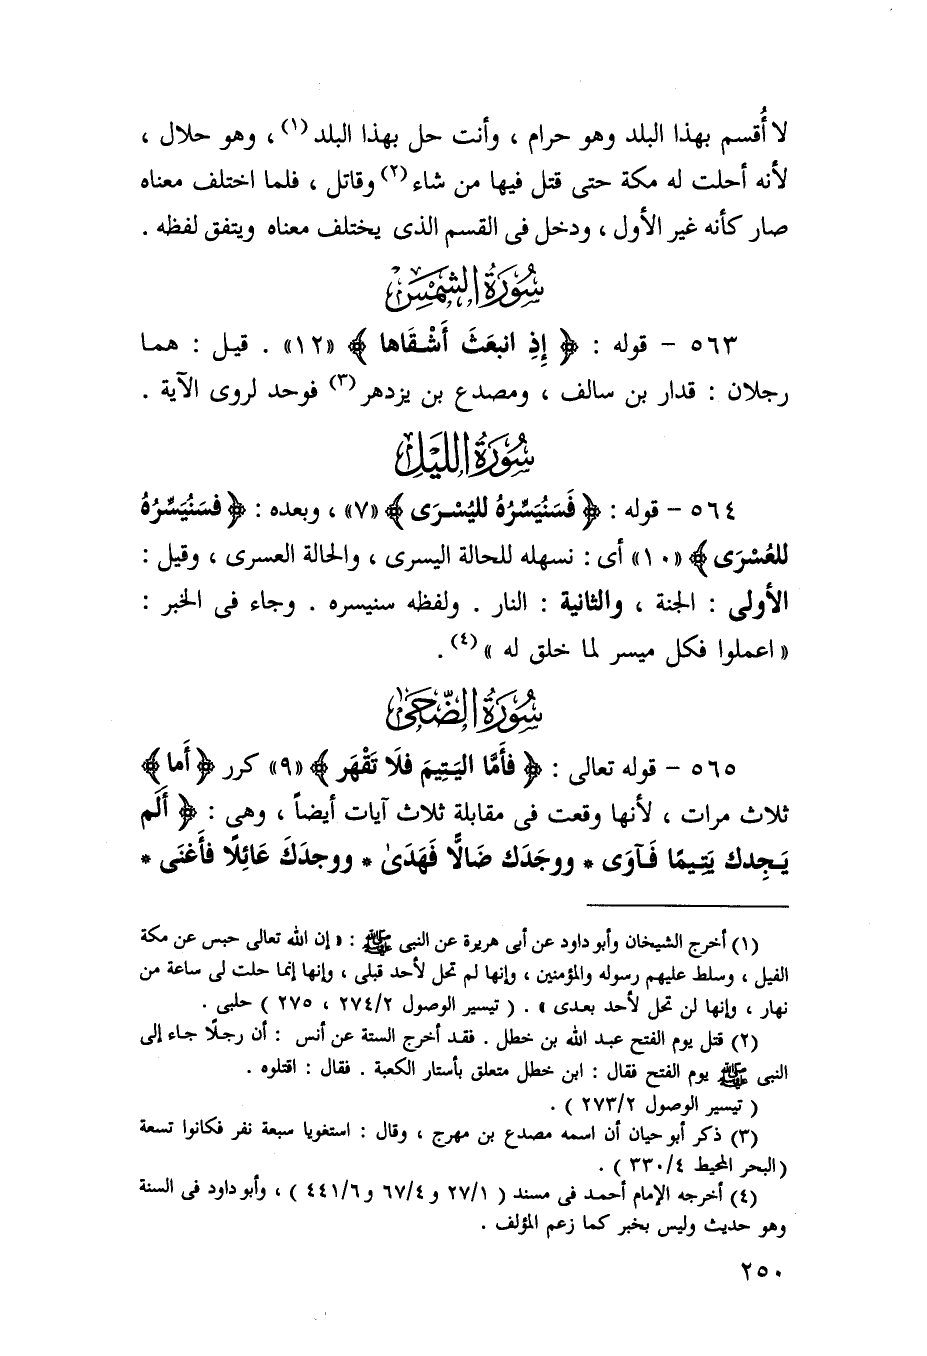 لا أُقسم بهذا البلد وهو حرام ، وأنت حل بهذا البلد (١) ، وهو حلال ،
لأنه أحلت له مكة حتى قتل فيها من شاء (٢) وقاتل ، فلما اختلف معناه
صار كأنه غير الأول ، ودخل فى القسم الذى يختلف معناه ويتفق لفظه .
سُورَةُ الشَّمْسِ
٥٦٣ – قوله : ﴿ إِذِ انبعَثَ أَشْقَاها ﴾ «١٢» . قيل : هما
رجلان : قدار بن سالف ، ومصدع بن يزدهر (٣) فوحد لروى الآية .
سُورَةُ اللَّيْلِ
٥٦٤ – قوله : ﴿ فَسَنُيَسِّرُهُ لليُسْرَى ﴾ «٧» ، وبعده : ﴿ فسَنُيَسِّرُهُ
للعُسْرَى ﴾ «١٠» أى : نسهله للحالة اليسرى ، والحالة العسرى ، وقيل :
الأولى : الجنة ، والثانية : النار . ولفظه سنيسره . وجاء فى الخبر :
« اعملوا فكل ميسر لما خلق له » (٤) .
سُورَةُ الضُّحَىٰ
٥٦٥ – قوله تعالى : ﴿ فأَمَّا اليَتِيمَ فلَا تَقْهَر ﴾ «٩» كرر ﴿ أَما ﴾
ثلاث مرات ، لأنها وقعت فى مقابلة ثلاث آيات أيضاً ، وهى : ﴿ أَلَم
يَجِدك يَتِيمًا فَآوَى * ووجَدَك ضَالًّا فَهَدَىٰ * ووجدَكَ عَائِلًا فأَغنَى *
(١) أخرج الشيخان وأبو داود عن أبى هريرة عن النبى ﷺ : « إن الله تعالى حبس عن مكة
الفيل ، وسلط عليهم رسوله والمؤمنين ، وإنها لم تحل لأحد قبلى ، وإنها إنما حلت لى ساعة من
نهار ، وإنها لن تحل لأحد بعدى » . ( تيسير الوصول ٢٧٤/٢ ، ٢٧٥ ) حلبى .
(٢) قتل يوم الفتح عبد الله بن خطل . فقد أخرج الستة عن أنس : أن رجلًا جاء إلى
النبى ﷺ يوم الفتح فقال : ابن خطل متعلق بأستار الكعبة . فقال : اقتلوه .
( تيسير الوصول ٢٧٣/٢ ) .
(٣) ذكر أبو حيان أن اسمه مصدع بن مهرج ، وقال : استغويا سبعة نفر فكانوا تسعة
(البحر المحيط ٣٣٠/٤ ) .
(٤) أخرجه الإمام أحمد فى مسند ( ٢٧/١ و ٦٧/٤ و ٤٤١/٦ ) ، وأبو داود فى السنة
وهو حديث وليس بخبر كما زعم المؤلف .
٢٥٠